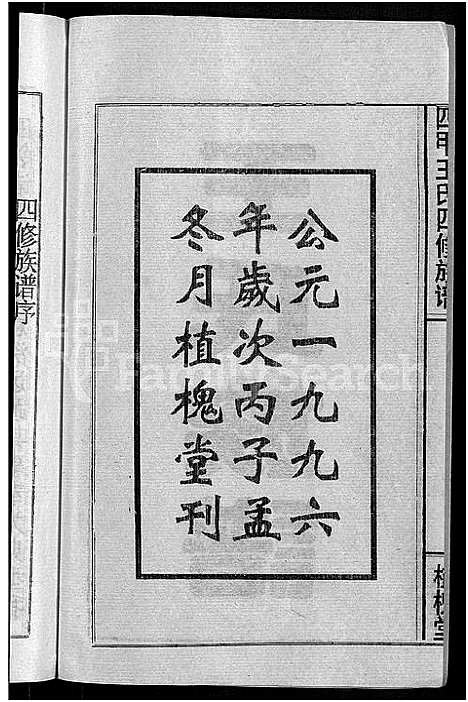 四甲王氏四修族谱
植槐堂
公元一九九六
年歲次丙子孟
冬月植槐堂刊
四修族谱序
FamilySearch